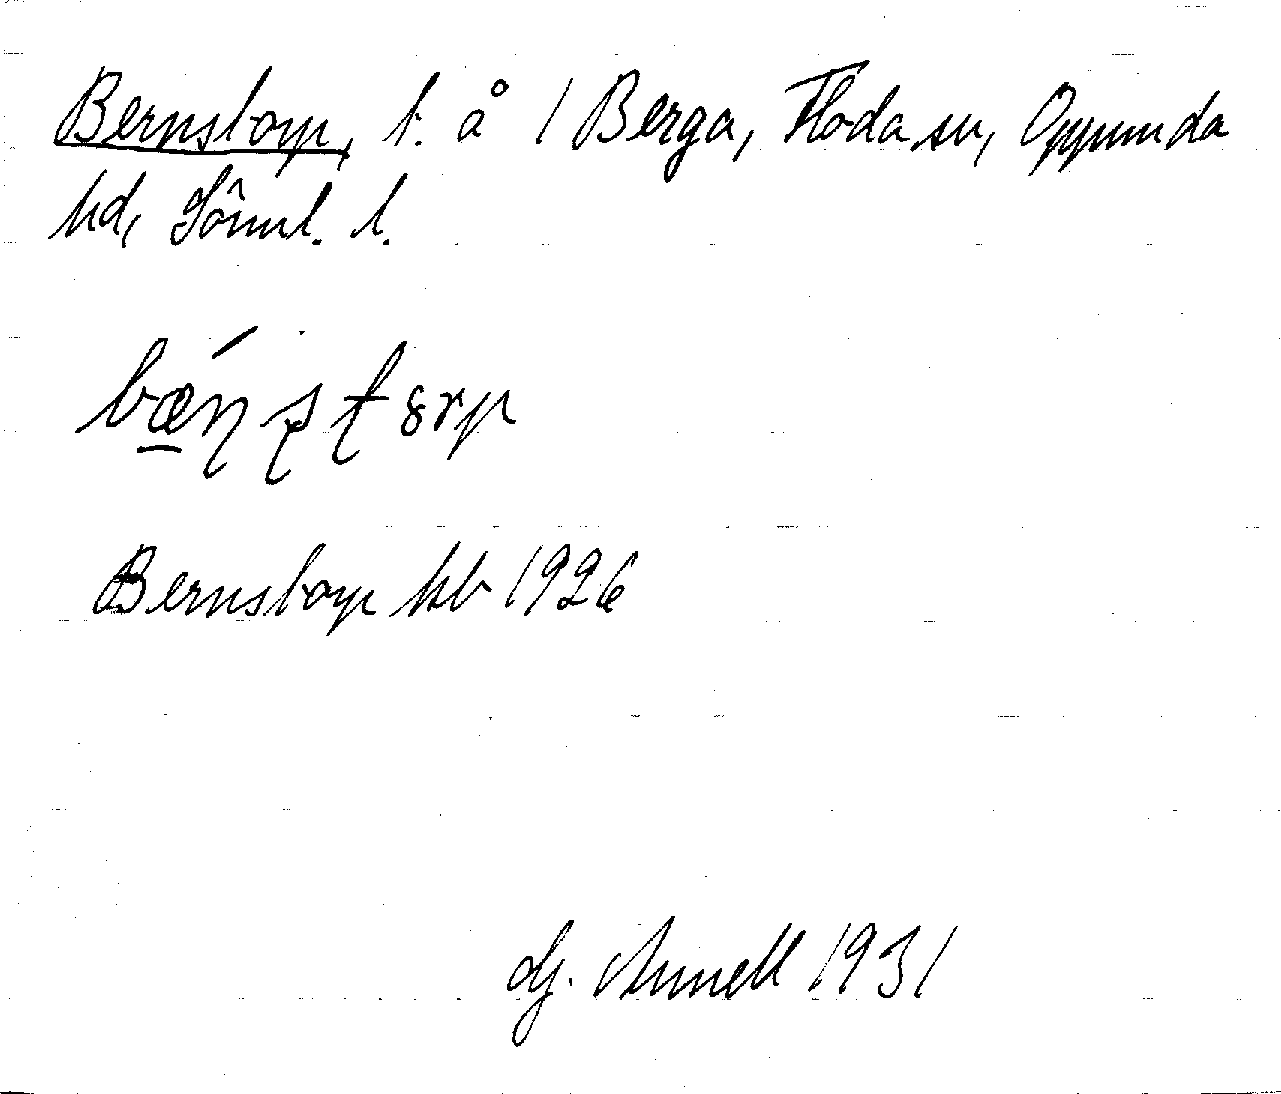 Bernstorp, t. å 1 Berga, Floda sn, Oppunda
hd, Sörml. l.
bǽ̱ṇṣṭȣrp
Bernstorp kb 1926
Gj. Annell 1931